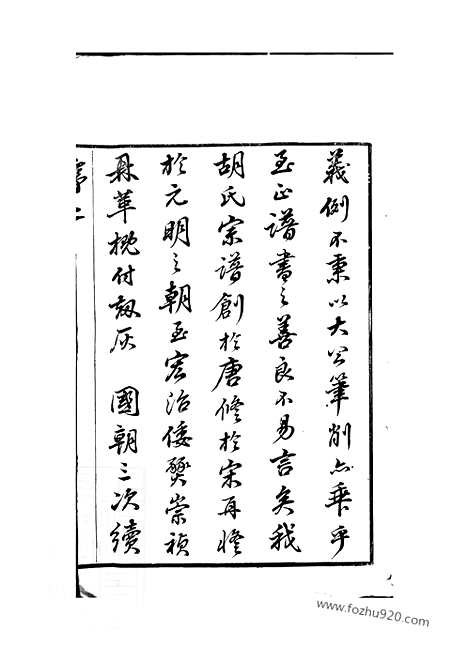 義例不秉以大公筆削亦乖乎
至正譜書之善良不易言矣我
胡氏宗譜創於唐修於宋再修
於元明之朝至宏治倭燹崇禎
鼎革概付劫灰 國朝三次續
www.fozhu920.com